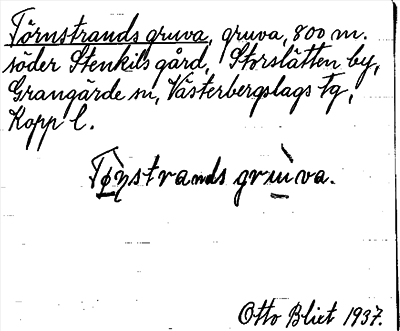 Törnstrands gruva, gruva, 800 m.
söder Stenkils gård, Storslätten by,
Grangärde sn, Västerbergslags fg,
Kopp l.
gruva.
Otto Blixt 1937.